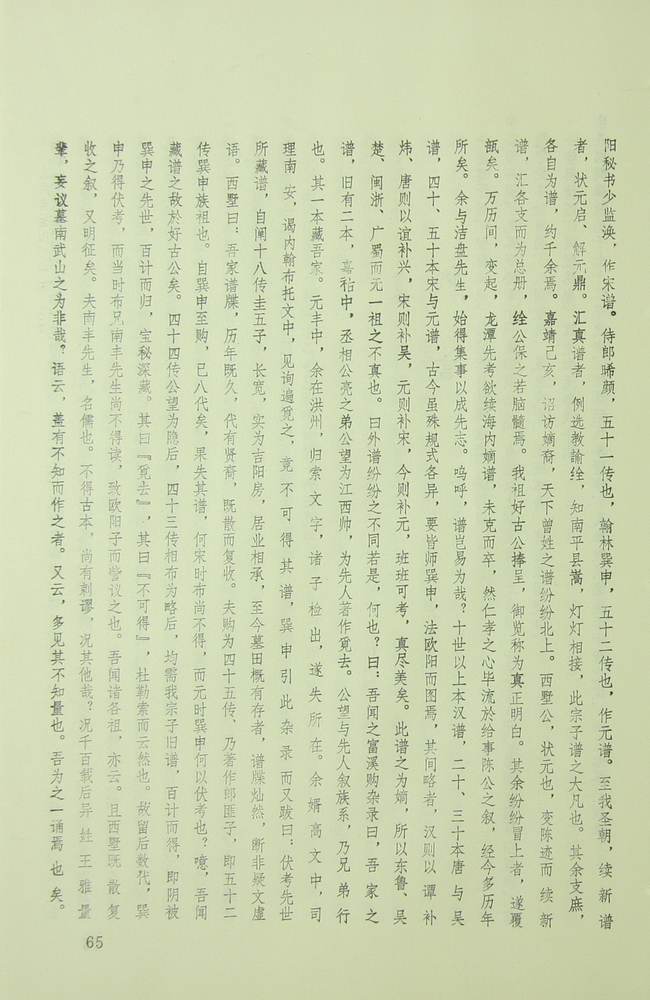 阳秘书少监涣，作宋谱。侍郎晞颜，五十一传也，翰林巽申，五十二传也，作元谱。至我圣朝，续新谱
者，状元启、解元鼎。汇真谱者，例选教諭绘，知南平县嵩，灯灯相接，此宗子谱之大凡也。其余支庶，
各自为谱，约千余焉。嘉靖己亥，诏访嫡裔，天下曾姓之谱纷纷北上。西墅公，状元也，变陈迹而续新
谱，汇各支而为总册，绘公保之若脑髓焉。我祖好古公捧呈，御览称为真正明白。其余纷纷冒上者，遂覆
瓿矣。万历间，变起，龙潭先考欲续海内嫡谱，未克而卒，然仁孝之心毕流於给事陈公之叙，经今多历年
所矣。余与洁盘先生，始得集事以成先志。呜呼，谱岂易为哉？十世以上本汉谱，二十、三十本唐与吴
谱，四十、五十本宋与元谱，古今虽殊规式各异，要皆师巽申，法欧阳而图焉，其间略者，汉则以谭补
炜、唐则以谊补兴，宋则补吴，元则补宋，今则补元，班班可考，真尽美矣。此谱之为嫡，所以东鲁、吴
楚、闽浙、广蜀而无一祖之不真也。曰外谱纷纷之不同若是，何也？曰：吾闻之富溪购杂录曰，吾家之
谱，旧有二本，嘉祐中，丞相公亮之弟公望为江西帅，为先人著作觅去。公望与先人叙族系，乃兄弟行
也。其一本藏吾家。元丰中，余在洪州，归索文字，诸子检出，遂失所在。余婿高文中，司
理南安，谒内翰布托文中，见询遍覓之，竟不可得其谱，巽申引此杂录而又跋曰：伏考先世
所藏谱，自阐十八传圭五子，长宽，实为吉阳房，居业相承，至今墓田概有存者，谱牒灿然，断非疑文虚
语。西墅曰：吾家谱牒，历年既久，代有贤裔，既散而复收。夫购为四十五传、乃著作郎匪子，即五十二
传巽申族祖也。自巽申至购，已八代矣，果失其谱，何宋时布尚不得，而元时巽申何以伏考也？噫，吾闻
藏谱之故於好古公矣。四十四传公望为隐后，四十三传相布为略后，均需我宗子旧谱，百计而得，即阴被
巽申之先世，百计而归，宝秘深藏。其曰『覓去』，其曰『不可得』，杜勒索而云然也。故留后数代，巽
申乃得伏考，而当时布兄南丰先生尚不得读，致欧阳子而訾议之也。吾闻诸各祖，亦云。且西墅既散复
收之叙，又明征矣。夫南丰先生，名儒也。不得古本，尚有剌谬，况其他哉？况千百载后异姓王雅量
辈，妄议墓南武山之为非哉？语云，盖有不知而作之者。又云，多见其不知量也。吾为之一诵焉也矣。
65